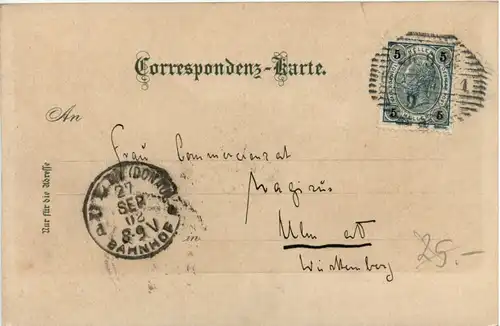 Correspondenz-Karte.
5 HELLER 5
5 5
1
An
Nur für die Adresse
Frau Commerzienrat
Magirus
Ulm a/D
in
Württemberg
ULM (DONAU)
27
SEP
02
8-9 V
BAHNHOF
25.-